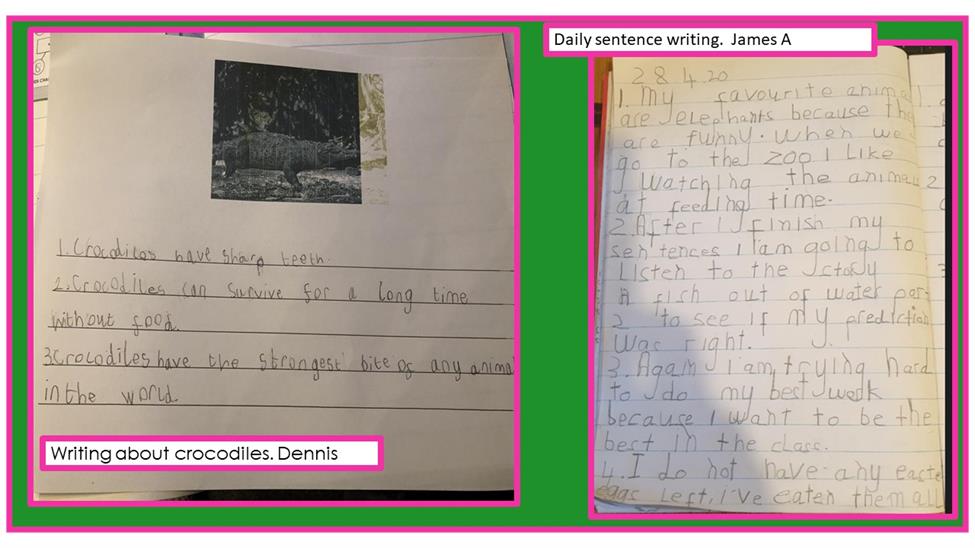 Daily sentence writing. James A
1. Crocodiles have sharp teeth.
2. Crocodiles can survive for a long time
without food.
3. Crocodiles have the strongest bite of any anima
in the world
Writing about crocodiles. Dennis
28 4.20
1. My favourite animal
are elephants because the
are funny. When we
go to the zoo I Like
Watching the animals
at feeding time.
2. After I finish my
sentences I am going to
Listen to the story
A fish out of water par
2 to see if my prediction
Was right.
3. Again I am trying hard
to do my best work
because I want to be the
best in the class.
4. I do not have any easte
eggs Left, I've eaten them all